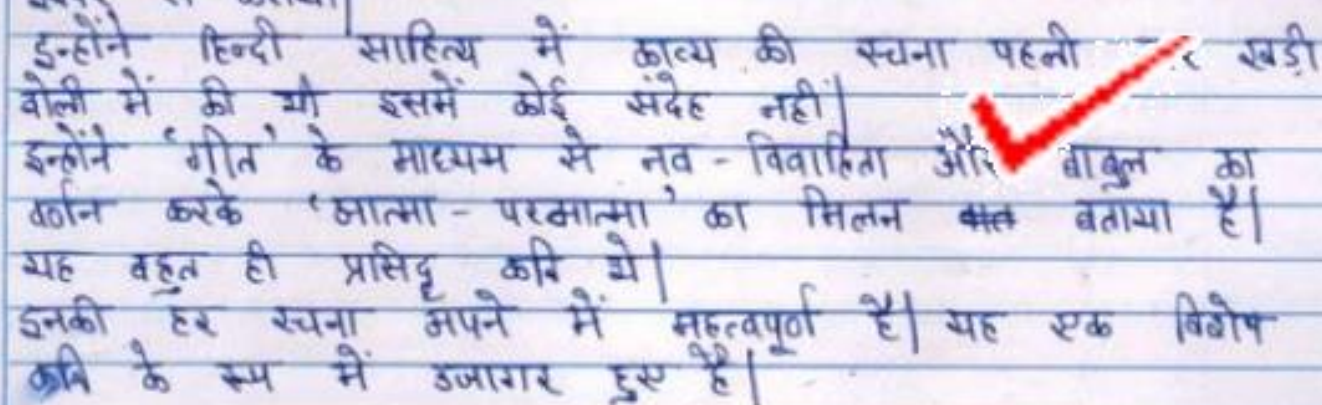 इन्होंने हिन्दी साहित्य में काव्य की रचना पहली खड़ी
बोली में की थी इसमें कोई संदेह नहीं।
इन्होंने 'गीत' के माध्यम से नव - विवाहिता और बाबुल का
वर्णन करके 'आत्मा - परमात्मा' का मिलन बताया है।
यह बहुत ही प्रसिद्ध कवि थे।
इनकी हर रचना अपने में महत्वपूर्ण है। यह एक विशेष
कवि के रूप में उजागर हुए है।